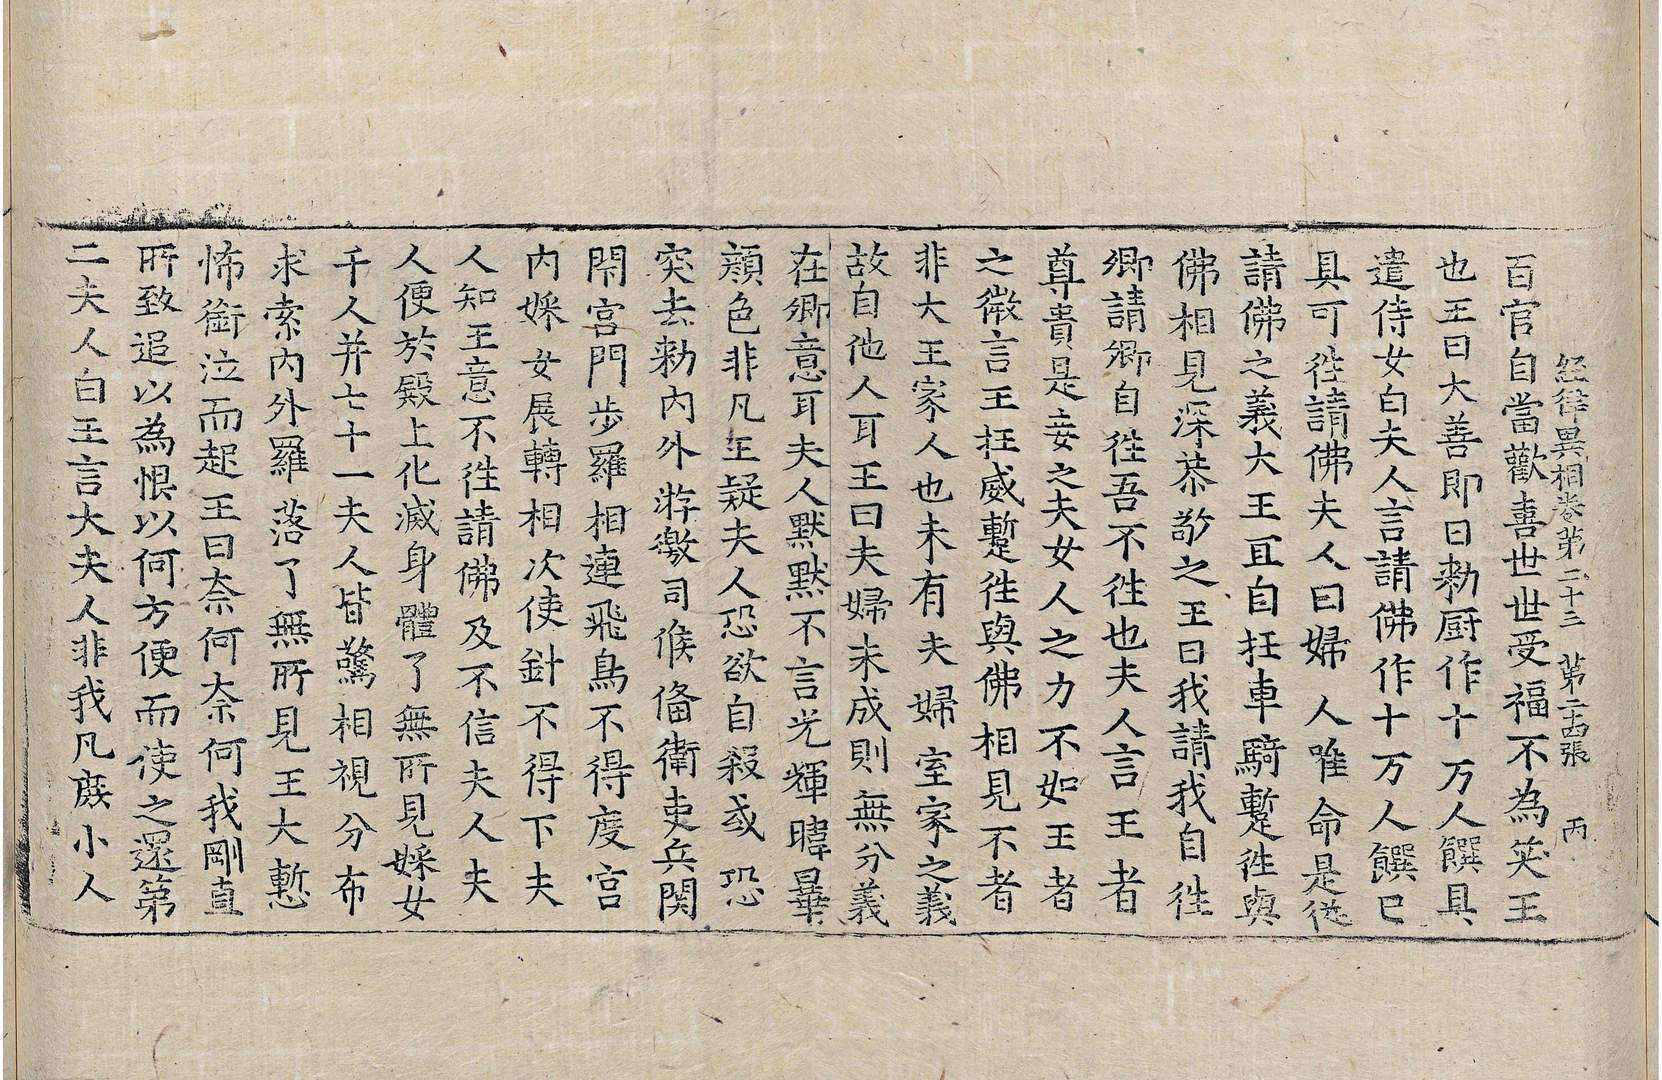 經律異相卷第二十三 第二十四張 丙
百官自當歡喜世世受福不為笑王
也王曰大善即日勑厨作十万人饌具
遣侍女白夫人言請佛作十万人饌已
具可徃請佛夫人曰婦人唯命是從
請佛之義大王宜自抂車騎蹔徃與
佛相見深恭敬之王曰我請我自徃
卿請卿自徃吾不徃也夫人言王者
尊貴是妾之夫女人之力不如王者
之微言王抂威蹔徃與佛相見不者
非大王家人也未有夫婦室家之義
故自他人耳王曰夫婦未成則無分義
在卿意耳夫人默默不言光輝暐曅
顔色非凡王疑夫人恐欲自殺或恐
突去勑內外遊徼司候俻衛吏兵関
閇宮門步羅相連飛鳥不得度宮
內婇女展轉相次使針不得下夫
人知王意不徃請佛及不信夫人夫
人便於殿上化滅身體了無所見婇女
千人并七十一夫人皆驚相視分布
求索內外羅落了無所見王大慙
怖銜泣而起王曰奈何奈何我剛直
所致追以為恨以何方便而使之還第
二夫人白王言大夫人非我凡庶小人